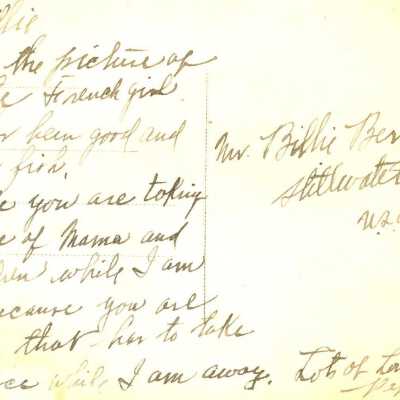 llie
the picture of
French girl
been good and
fish.
you are taking
e of Mama and
while I am
ecause you are
that has to take
ce while I am away.
Mr. Billie Ber
Stillwater
U.S.
Lots of Lov